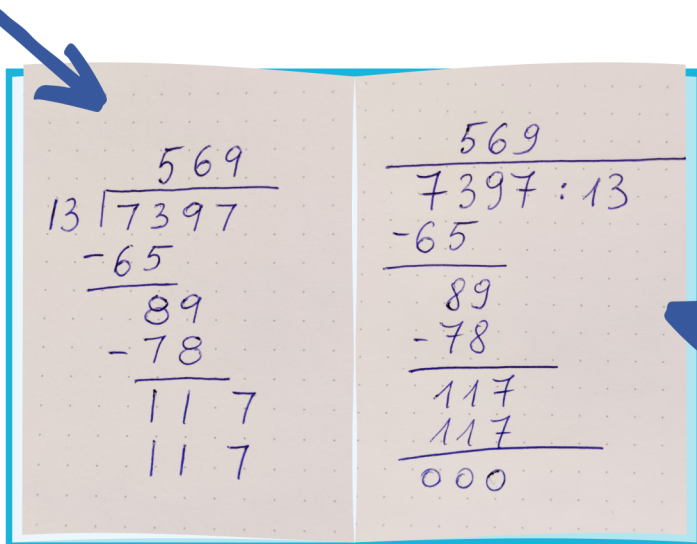 569
13 7397
-65
89
-78
117
117
569
7397 : 13
-65
89
-78
117
117
000